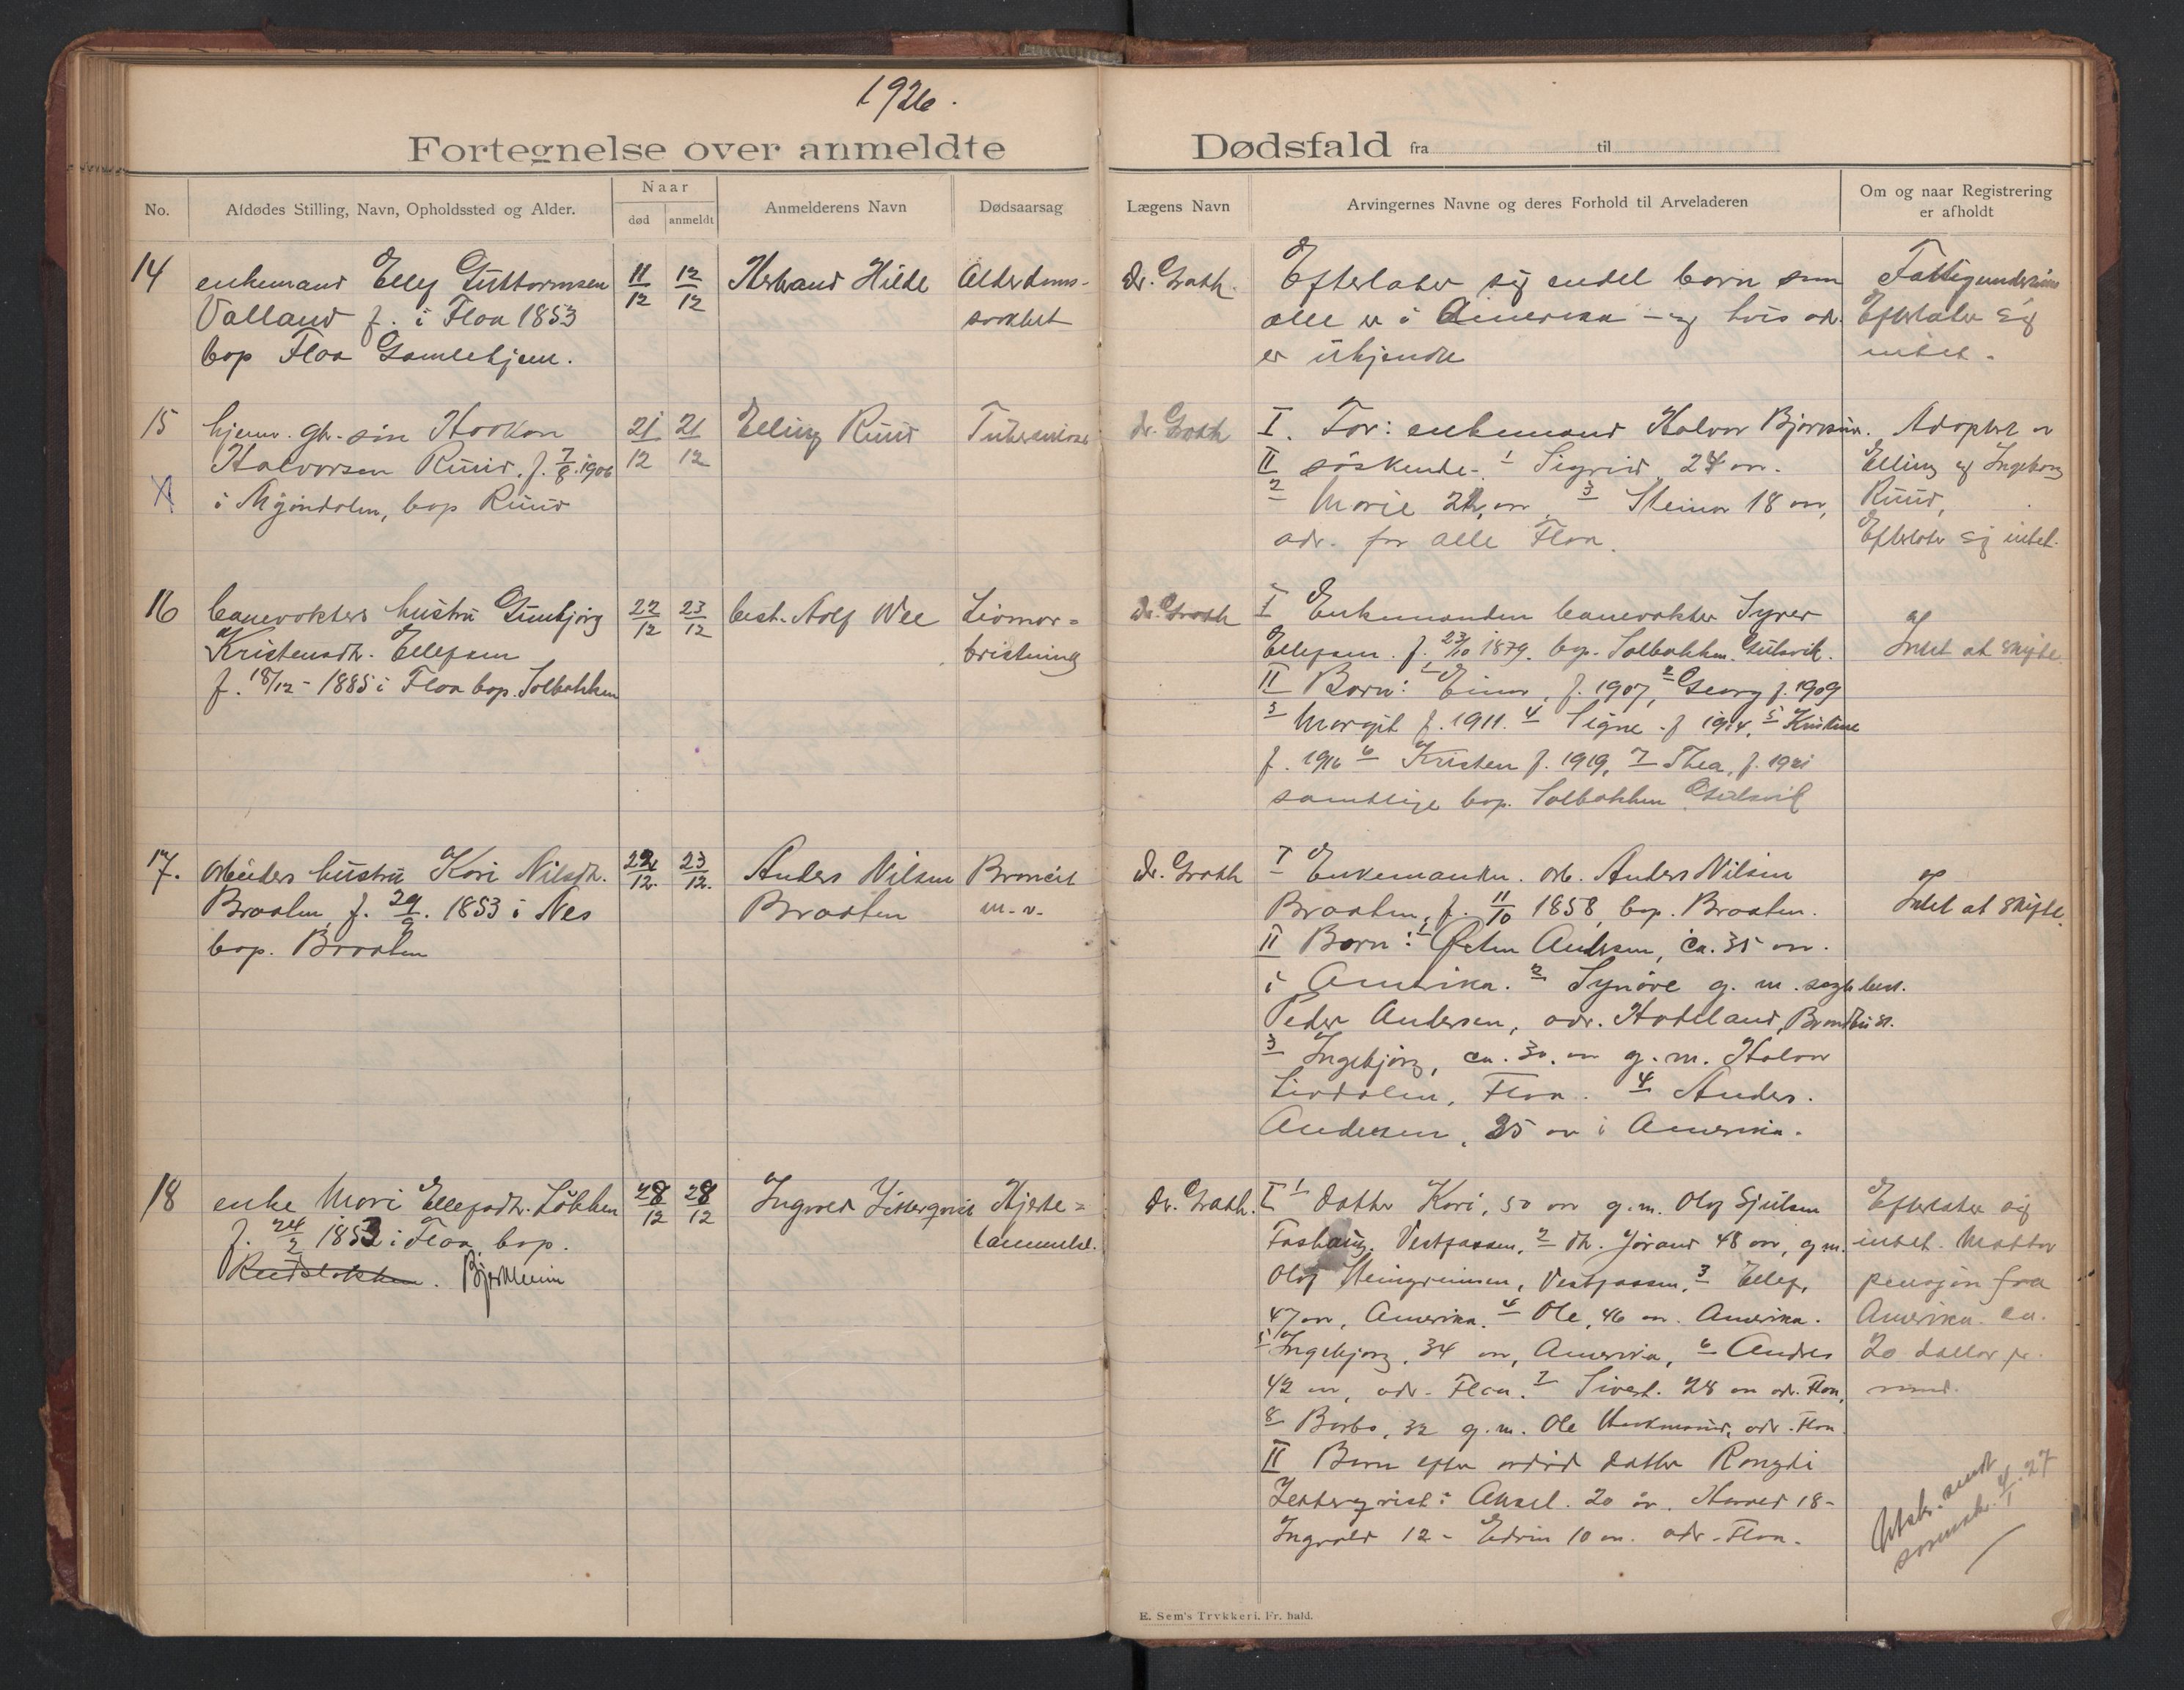 1926.
Fortegnelse over anmeldte Dødsfald fra til
No.
Afdødes Stilling, Navn, Opholdssted og Alder.
Naar
død
anmeldt
Anmelderens Navn
Dødsaarsag
Lægens Navn
Arvingernes Navne og deres Forhold til Arveladeren
Om og naar Registrering
er afholdt
14
enkemand Ellef Guttormsen
Valland f. i Flaa 1853
bop Flaa Gamlehjem.
11/12
12/12
Herbrand Hilde
Alderdoms-
svakhet
Dr. Groth.
Efterlater sig endel barn som
alle er i Amerika - og hvis adr.
er ukjendte
Efterlater sig
intet.
15
hjemv. gbr. søn Haakon
Halvorsen Ruud. f. 7/8. 1906
i Mjøndalen, bop Ruud
21/12
21/12
Elling Ruud
Tuberkulose
dr. Groth
I. Far: enkemand Halvor Bjørnsen.
II søskende. 1 Sigrid 24 aar.
2 Marie 22 aar, 3 Steinar 18 aar,
adr. for alle Flaa.
Adoptert av
Elling og Ingeborg
Ruud,
Efterlater sig intet.
16
banevokters hustru Gunbjørg
Kristensdtr. Ellefsen
f. 18/12 - 1885 i Flaa bop. Solbakken
22/12
23/12
best. Adolf Wee
Livmor=
bristning
Dr. Groth
I Enkemanden banevokter Syver
Ellefsen. f. 23/10 1879. bop. Solbakken Gulsvik.
II Barn: 1 Einar, f. 1907, 2 Georg f. 1909
3 Margit f. 1911. 4 Signe. f 1914, 5 Kristine
f. 1916 6 Kristen f. 1919, 7 Thea, f. 1921
samtlige bop. Solbakken Gulsvik
Intet at skifte.
17.
Arbeiders hustru Kari Nilsdtr.
Braaten, f. 29/9. 1853 i Nes
bop. Braaten
22/12.
23/12.
Anders Nilsen
Braaten
Broncit
m. v.
Dr. Groth
I Enkemanden. arb. Anders Nilsen
Braaten, f. 11/10 1858, bop. Braaten.
II Barn: 1 Østen Andersen, ca. 35 aar.
i Amerika. 2 Synøve g. m. sagb.best.
Peder Andersen, adr. Hadeland, Brandbu st.
3 Ingebjørg, ca. 30. aar g. m. Halvor
Livdalen, Flaa. 4 Anders.
Andersen, 25 aar i Amerika.
Intet at skifte.
18
enke Mari Ellefsdtr. Løkken
f. 24/2 1853 i Flaa, bop.
Rudsløkken. Bjerkheim
28/12
28/12
Ingvald Zettergvist
Hjerte=
lammelse.
Dr. Groth.
I 1 Datter Kari, 50 aar g. m. Olaf Sjulsen
Vestfossen, 2 dtr. Jørand 48 aar, g m.
Olaf Steingrimsen, Vestfossen, 3 Ellef,
47 aar, Amerika. 4 Ole, 46 aar. Amerika.
5 Ingebjørg, 34 aar, Amerika, 6 Andres
42 aar, adr. Flaa. 7 Sivert. 28 aar adr. Flaa,
8 Barbo, 32 g. m. Ole adr. Flaa
II Barn efter avdød datter Rangdi
Zettergvist: Aksel. 20 år. Harald 18 -
Ingvald 12 - Edvin 10 aar. adr. Flaa.
Efterlater sig
intet. Mottar
pensjon fra
Amerika ca.
20 dollar pr.
mnd.
Utskr. sendt
sorenskr. 4/1. 27
E. Sem's Trykkeri, Fr. hald.